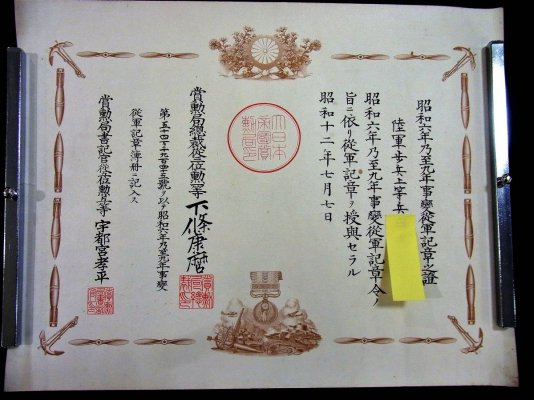 昭和六年乃至九年事變從軍記章之證
陸軍歩兵上等兵
昭和六年乃至九年事變從軍記章令ノ
旨ニ依リ從軍記章ヲ授與セラル
昭和十二年七月七日
大日本帝國賞勲局印
賞勲局總裁從三位勲一等下條康麿
賞勲局總裁之印
號ヲ以テ昭和六年乃至九年事變
從軍記章簿册ニ記入ス
賞勲局書記官從五位勲五等宇都宮孝平